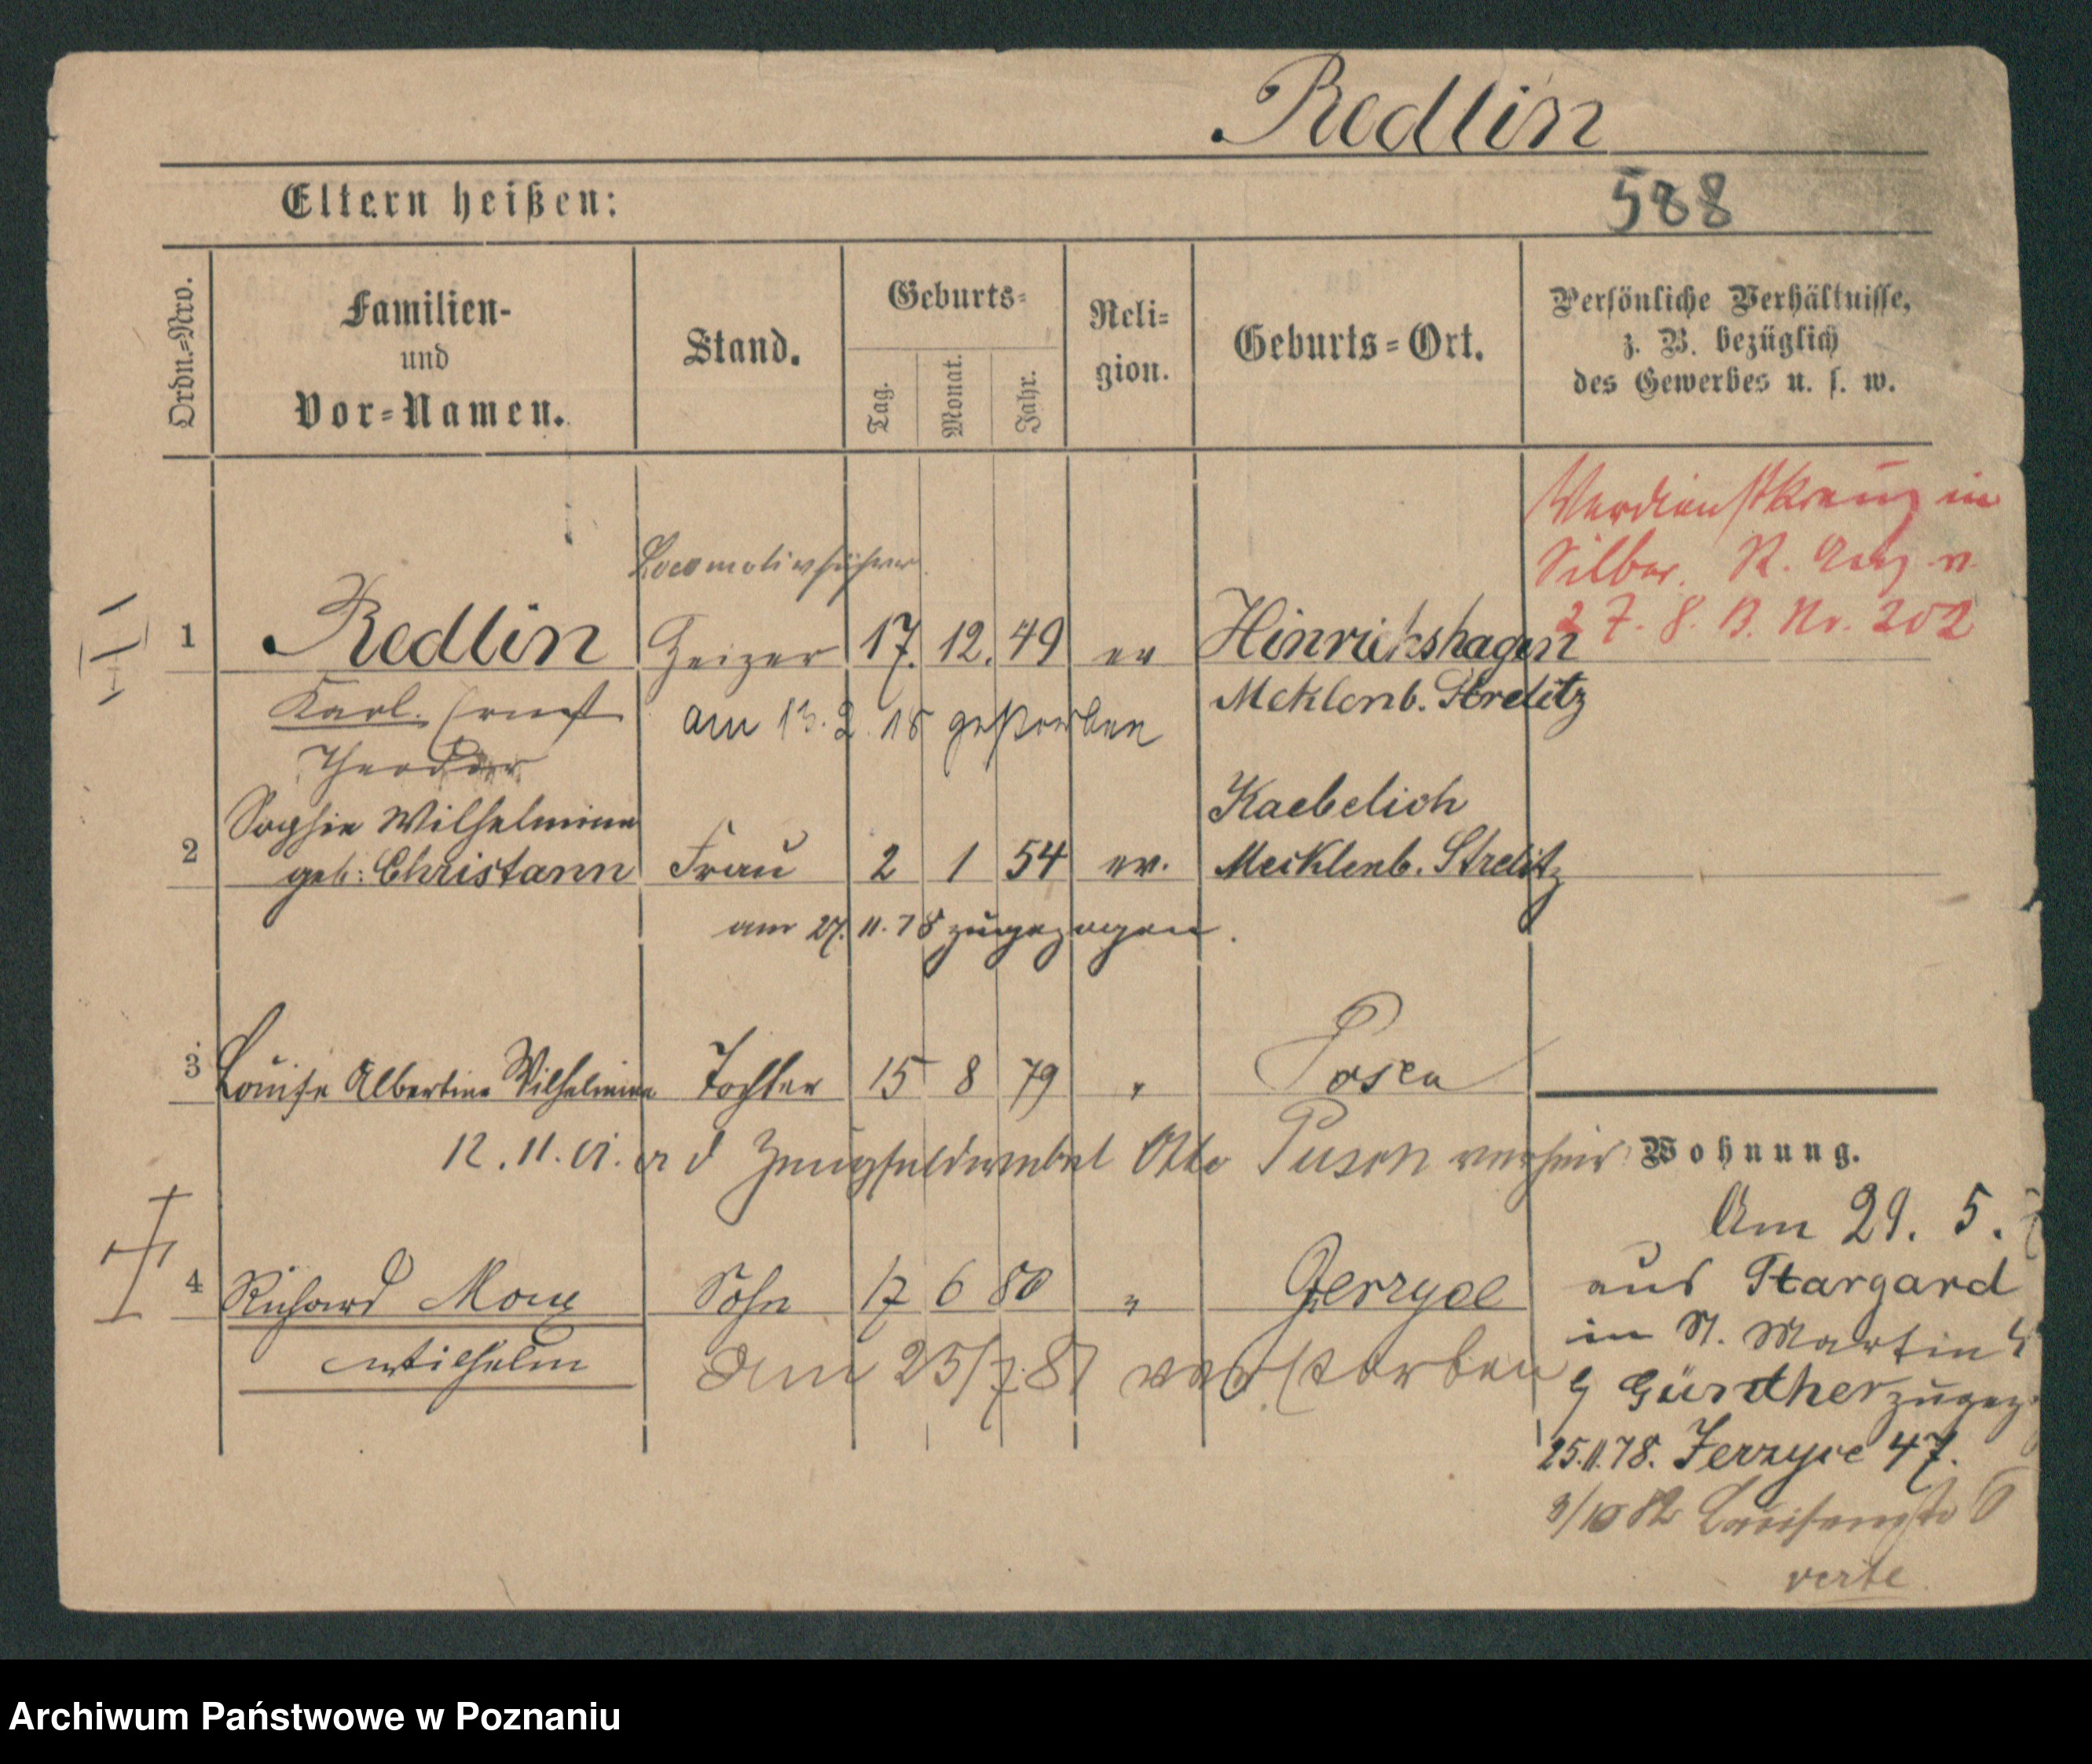 Redlin
Eltern heißen:
588
Ordn.=Nro.
Familien-
und
Vor=Namen.
Stand.
Geburts=
Tag.
Monat.
Jahr.
Reli=
gion.
Geburts=Ort.
Persönliche Verhältnisse,
z. B. bezüglich
des Gewerbes u. s. w.
Verdienstkreuz in
Silber. R. Anz. v.
27. 8. B. Nr. 202
Locomotivführer
1 Redlin Heizer 17. 12. 49 ev Hinrickshagen
Karl. Ernst am 13. 2. 18 gestorben Meklenb. Strelitz
Theodor
Sophie Wilhelmine Kaebelich
2 geb: Christann Frau 2 1 54 ev. Mecklenb. Strelitz
am 27. 11. 78 zugezogen.
3 Louise Albertine Wilhelmine Tochter 15 8 79 " Posen
12. 11. 01. d Zeugfeldwebel Otto verheir
Wohnung.
Am 29. 5.
aus Stargard
in St. Martin
Günther zugez.
25.11.78. Jerzyce 47.
3/10 82 Louisenstr 6
verte
4 Richard Max Sohn 17 6 80 " Jerzyce
Wilhelm Am 25/7. 87 verstorben
Archiwum Państwowe w Poznaniu